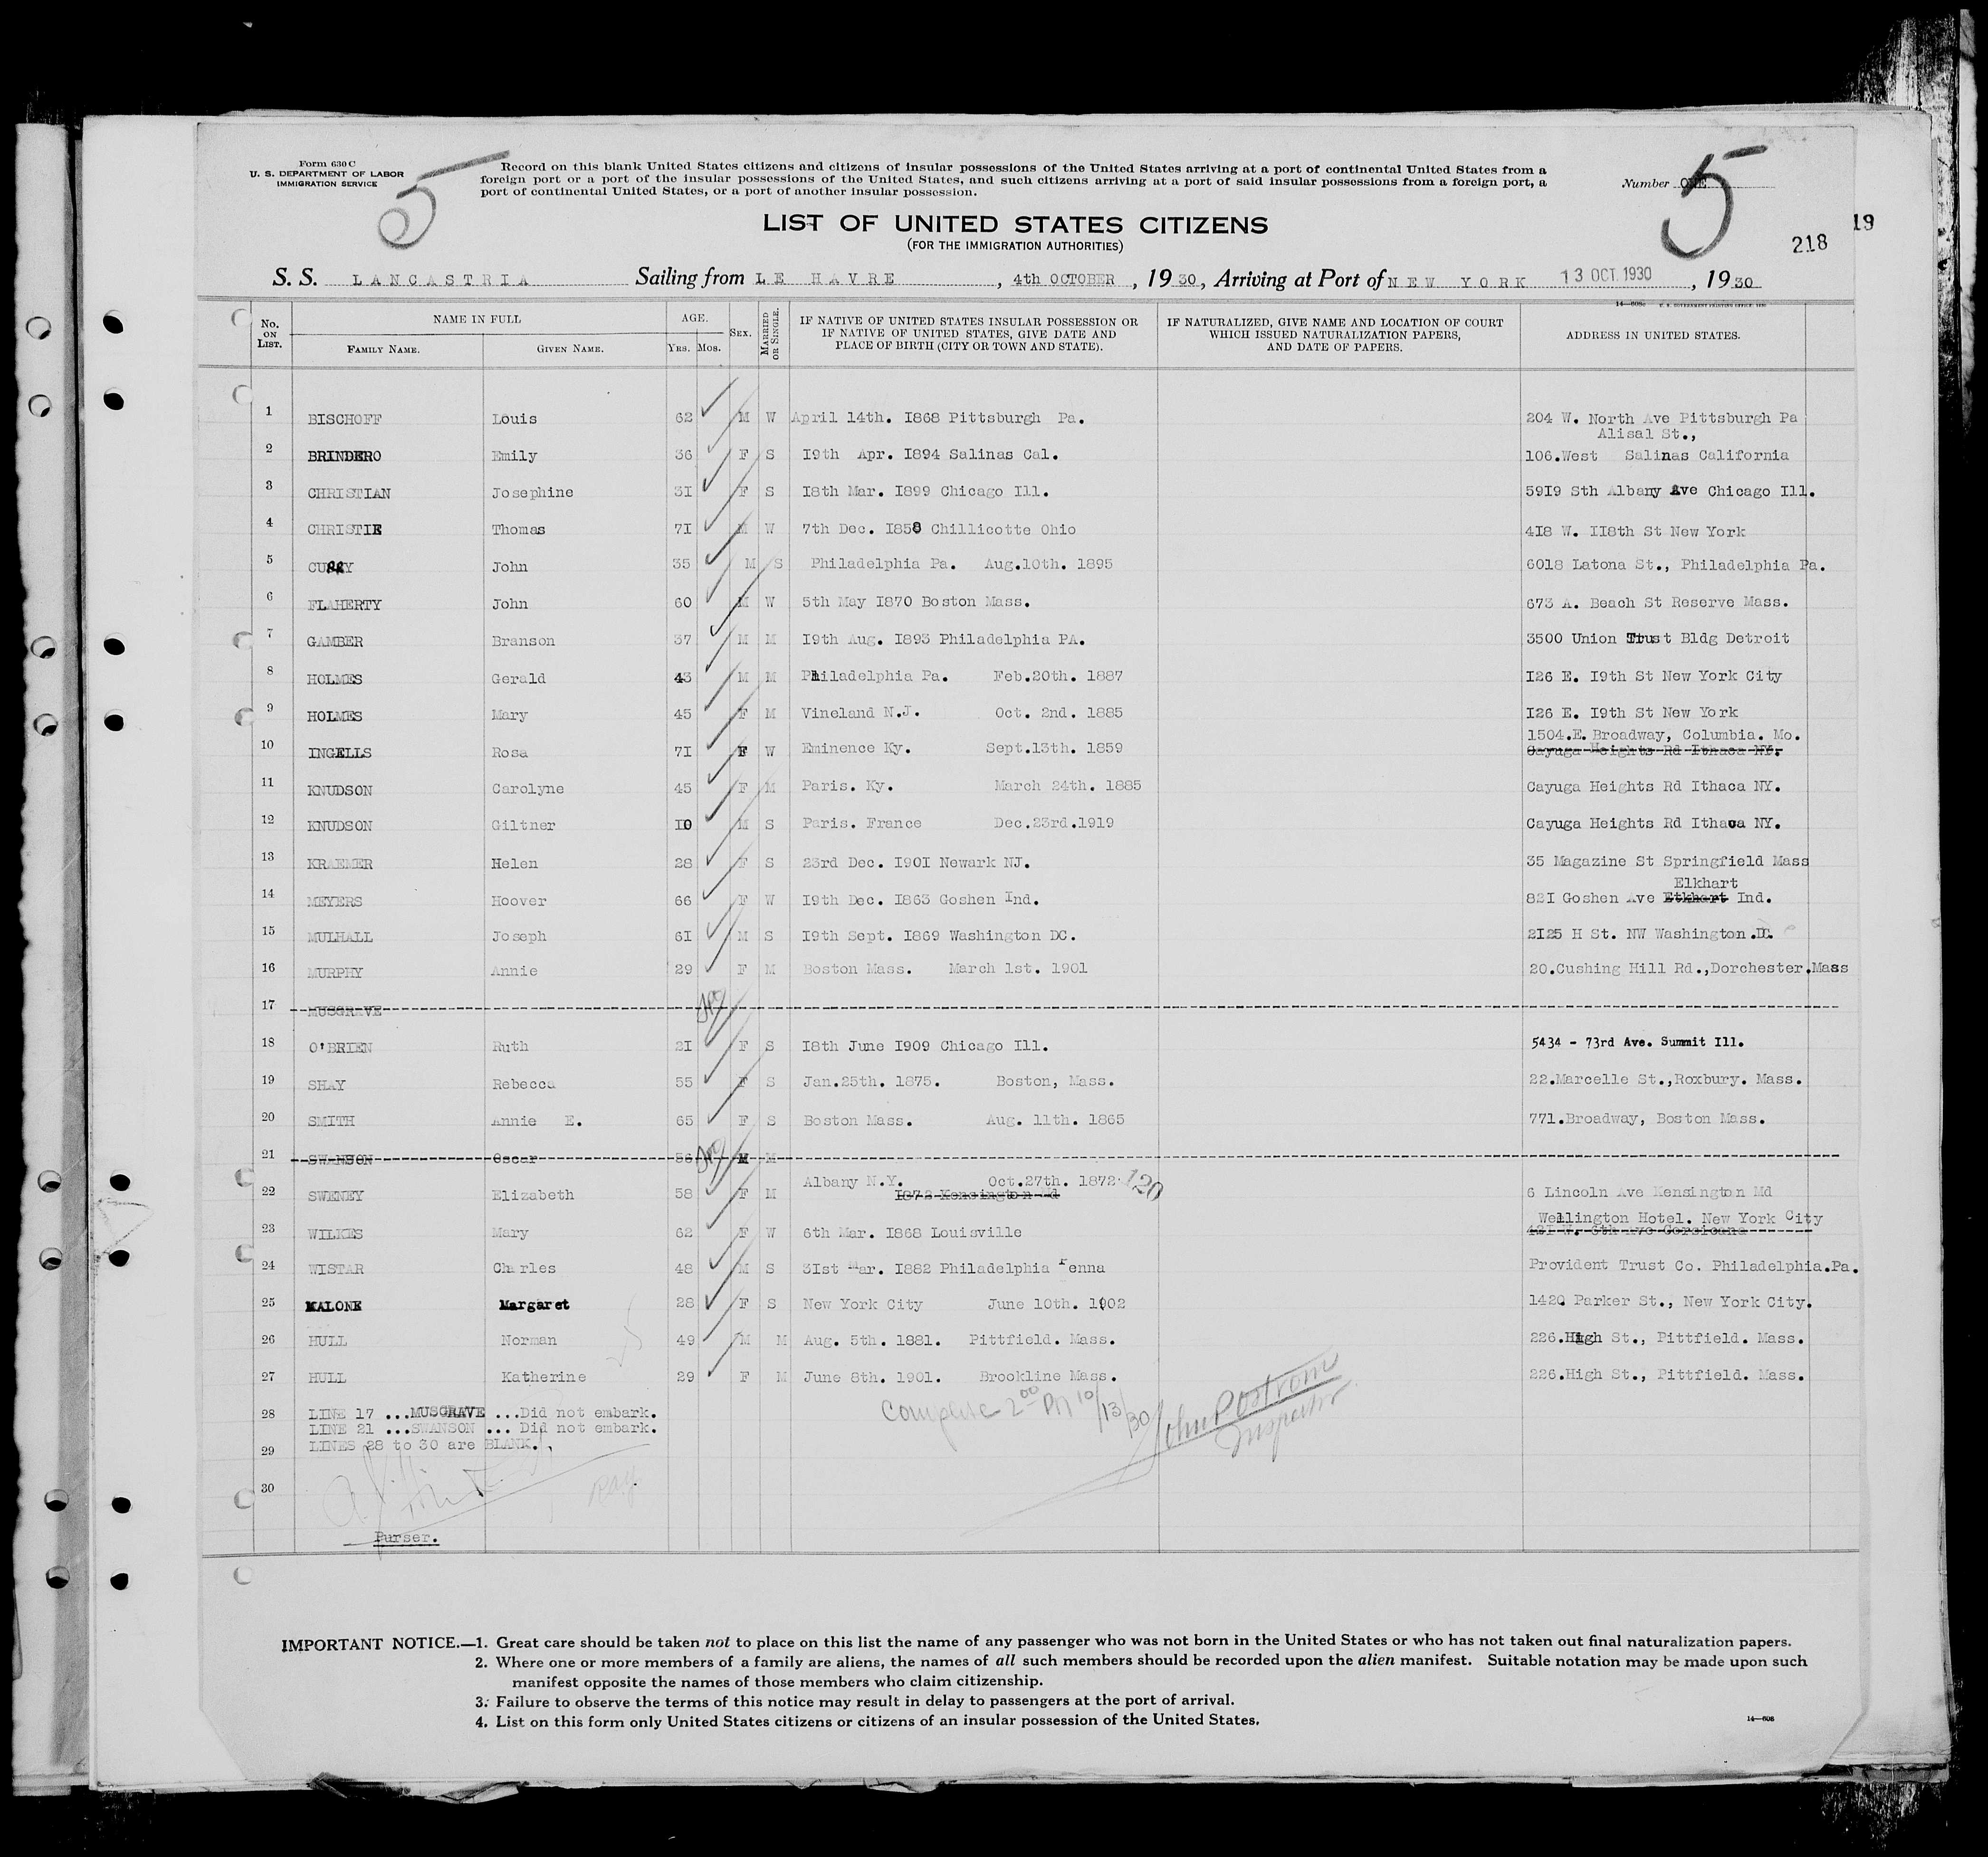 Form 630 C
U. S. DEPARTMENT OF LABOR
IMMIGRATION SERVICE
5
Record on this blank United States citizens and citizens of insular possessions of the United States arriving at a port of continental United States from a
foreign port or a port of the insular possessions of the United States, and such citizens arriving at a port of said insular possessions from a foreign port, a
port of continental United States, or a port of another insular possession.
Number ONE
5
LIST OF UNITED STATES CITIZENS
(FOR THE IMMIGRATION AUTHORITIES)
19
218
S. S. LANCASTRIA Sailing from LE HAVRE, 4th OCTOBER, 1930, Arriving at Port of NEW YORK 13 OCT. 1930, 1930
No. ON LIST. NAME IN FULL AGE. SEX. MARRIED OR SINGLE. IF NATIVE OF UNITED STATES INSULAR POSSESSION OR IF NATIVE OF UNITED STATES, GIVE DATE AND PLACE OF BIRTH (CITY OR TOWN AND STATE). IF NATURALIZED, GIVE NAME AND LOCATION OF COURT WHICH ISSUED NATURALIZATION PAPERS, AND DATE OF PAPERS. ADDRESS IN UNITED STATES.
FAMILY NAME. GIVEN NAME. YRS. MOS.
1 BISCHOFF Louis 62 M W April 14th. 1868 Pittsburgh Pa. 204 W. North Ave Pittsburgh Pa
Alisal St.,
2 BRINDERO Emily 36 F S 19th Apr. 1894 Salinas Cal. 106.West Salinas California
3 CHRISTIAN Josephine 31 F S 18th Mar. 1899 Chicago Ill. 5919 Sth Albany Ave Chicago Ill.
4 CHRISTIE Thomas 71 M W 7th Dec. 1858 Chillicotte Ohio 418 W. 118th St New York
5 John 35 M S Philadelphia Pa. Aug.10th. 1895 6018 Latona St., Philadelphia Pa.
6 FLAHERTY John 60 M W 5th May 1870 Boston Mass. 673 A. Beach St Reserve Mass.
7 GAMBER Branson 37 M M 19th Aug. 1893 Philadelphia PA. 3500 Union Trust Bldg Detroit
8 HOLMES Gerald 43 M M Philadelphia Pa. Feb.20th. 1887 126 E. 19th St New York City
9 HOLMES Mary 45 F M Vineland N.J. Oct. 2nd. 1885 126 E. 19th St New York
1504.E. Broadway, Columbia. Mo.
10 INGELLS Rosa 71 F W Eminence Ky. Sept.13th. 1859 Cayuga Heights Rd Ithaca NY.
11 KNUDSON Carolyne 45 F M Paris. Ky. March 24th. 1885 Cayuga Heights Rd Ithaca NY.
12 KNUDSON Giltner 10 M S Paris. France Dec.23rd.1919 Cayuga Heights Rd Ithaca NY.
13 KRAEMER Helen 28 F S 23rd Dec. 1901 Newark NJ. 35 Magazine St Springfield Mass
Elkhart
14 MEYERS Hoover 66 F W 19th Dec. 1863 Goshen Ind. 821 Goshen Ave Etkhart Ind.
15 MULHALL Joseph 61 M S 19th Sept. 1869 Washington DC. 2125 H St. NW Washington.DC.
16 MURPHY Annie 29 F M Boston Mass. March 1st. 1901 20.Cushing Hill Rd.,Dorchester.Mass
17 MUSGRAVE
18 O'BRIEN Ruth 21 F S 18th June 1909 Chicago Ill. 5434 - 73rd Ave. Summit Ill.
19 SHAY Rebecca 55 F S Jan.25th. 1875. Boston, Mass. 22.Marcelle St.,Roxbury. Mass.
20 SMITH Annie E. 65 F S Boston Mass. Aug. 11th. 1865 771.Broadway, Boston Mass.
21 SWANSON Oscar 56 M M
Albany N.Y. Oct.27th. 1872. 120
22 SWENEY Elizabeth 58 F M 1872 Kensington Md 6 Lincoln Ave Kensington Md
Wellington Hotel. New York City
23 WILKES Mary 62 F W 6th Mar. 1868 Louisville 421 W. 6th Ave Corsicana
24 WISTAR Charles 48 M S 31st Mar. 1882 Philadelphia Penna Provident Trust Co. Philadelphia.Pa.
25 MALONE Margaret 28 F S New York City June 10th. 1902 1420 Parker St., New York City.
26 HULL Norman 49 M M Aug. 5th. 1881. Pittfield. Mass. 226.High St., Pittfield. Mass.
27 HULL Katherine 29 F M June 8th. 1901. Brookline Mass. 226.High St., Pittfield. Mass.
28 LINE 17 ...MUSGRAVE ...Did not embark.
LINE 21 ...SWANSON ... Did not embark.
29 LINES 28 to 30 are BLANK.
Complete 2 00 PM 10/13/30 John P Ostrom
Inspector
30
Purser.
IMPORTANT NOTICE.—1. Great care should be taken not to place on this list the name of any passenger who was not born in the United States or who has not taken out final naturalization papers.
2. Where one or more members of a family are aliens, the names of all such members should be recorded upon the alien manifest. Suitable notation may be made upon such
manifest opposite the names of those members who claim citizenship.
3. Failure to observe the terms of this notice may result in delay to passengers at the port of arrival.
4. List on this form only United States citizens or citizens of an insular possession of the United States.
14—608